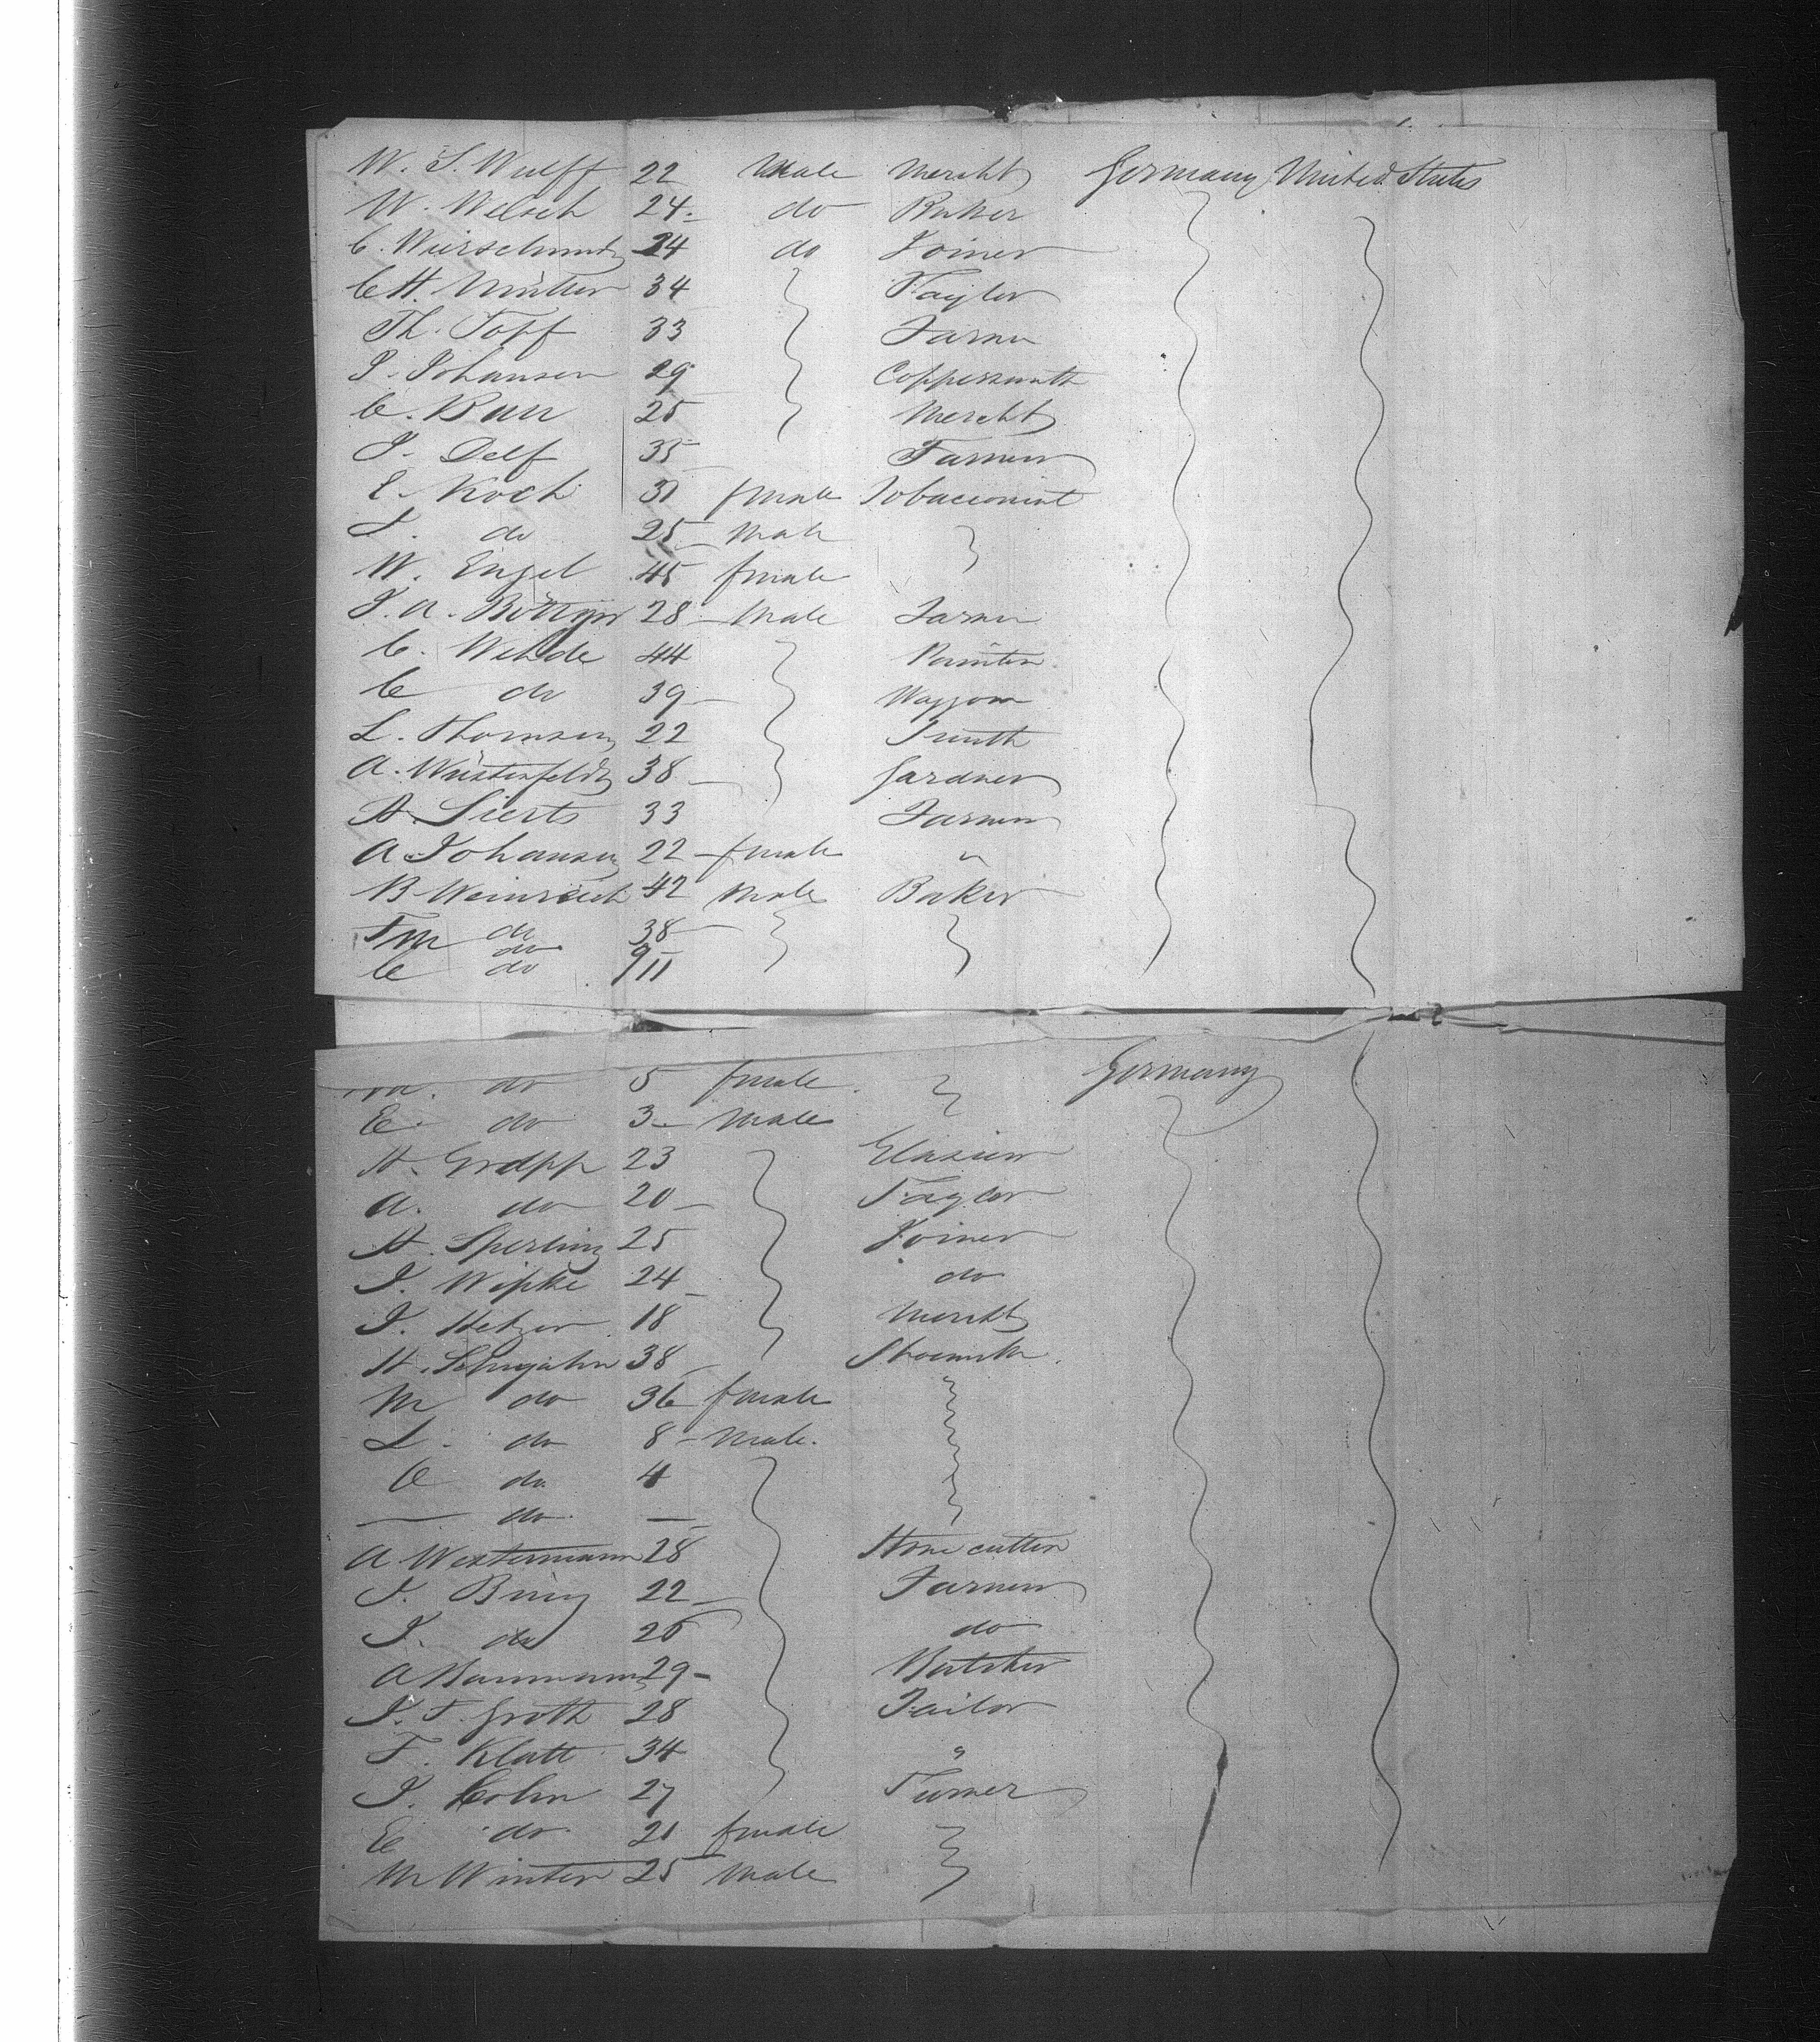 W. S. Wulff 22 Male Mercht Germany United States
W. Welsch 24 do Baker
C. Wierschmidt 24 do Joiner
C H. Müller 34 Taylor
Th. Topf 33 Farmer
J. Johansen 29 Coppersmith
C. Barr 25 Mercht
J. Delf 35 Farmer
E. Koch 31 female Tobacconist
J. do 25 Male
W. Engel 45 female
J. A. Böttger 28 Male Farmer
C. Wehde 44 Painter
C do 39 Waggon
L. Thomsen 22 Smith
A. Wüstenfeldt 38 Gardner
H. Sierts 33 Farmer
A Johansen 22 female "
B Weinreich 42 Male Baker
F do 38
M do 9
C do 11
M. do 5 female Germany
E. do 3 Male
H. Gropp 23 Glasier
A. do 20 Taylor
H. Sperling 25 Joiner
J. Wipke 24 do
J. Hetzer 18 Mercht
H. 38
M do 36 female
L. do 8 Male.
C do 4
— do —
A Westermann 28 Stone cutter
J. Bring 22 Farmer
J. do 26 do
A Baumann 29 Butcher
J. F. Groth 28 Tailor
F. Klatt 34 "
J. Cohn 27 Turner
E do 21 female
M Winter 25 Male